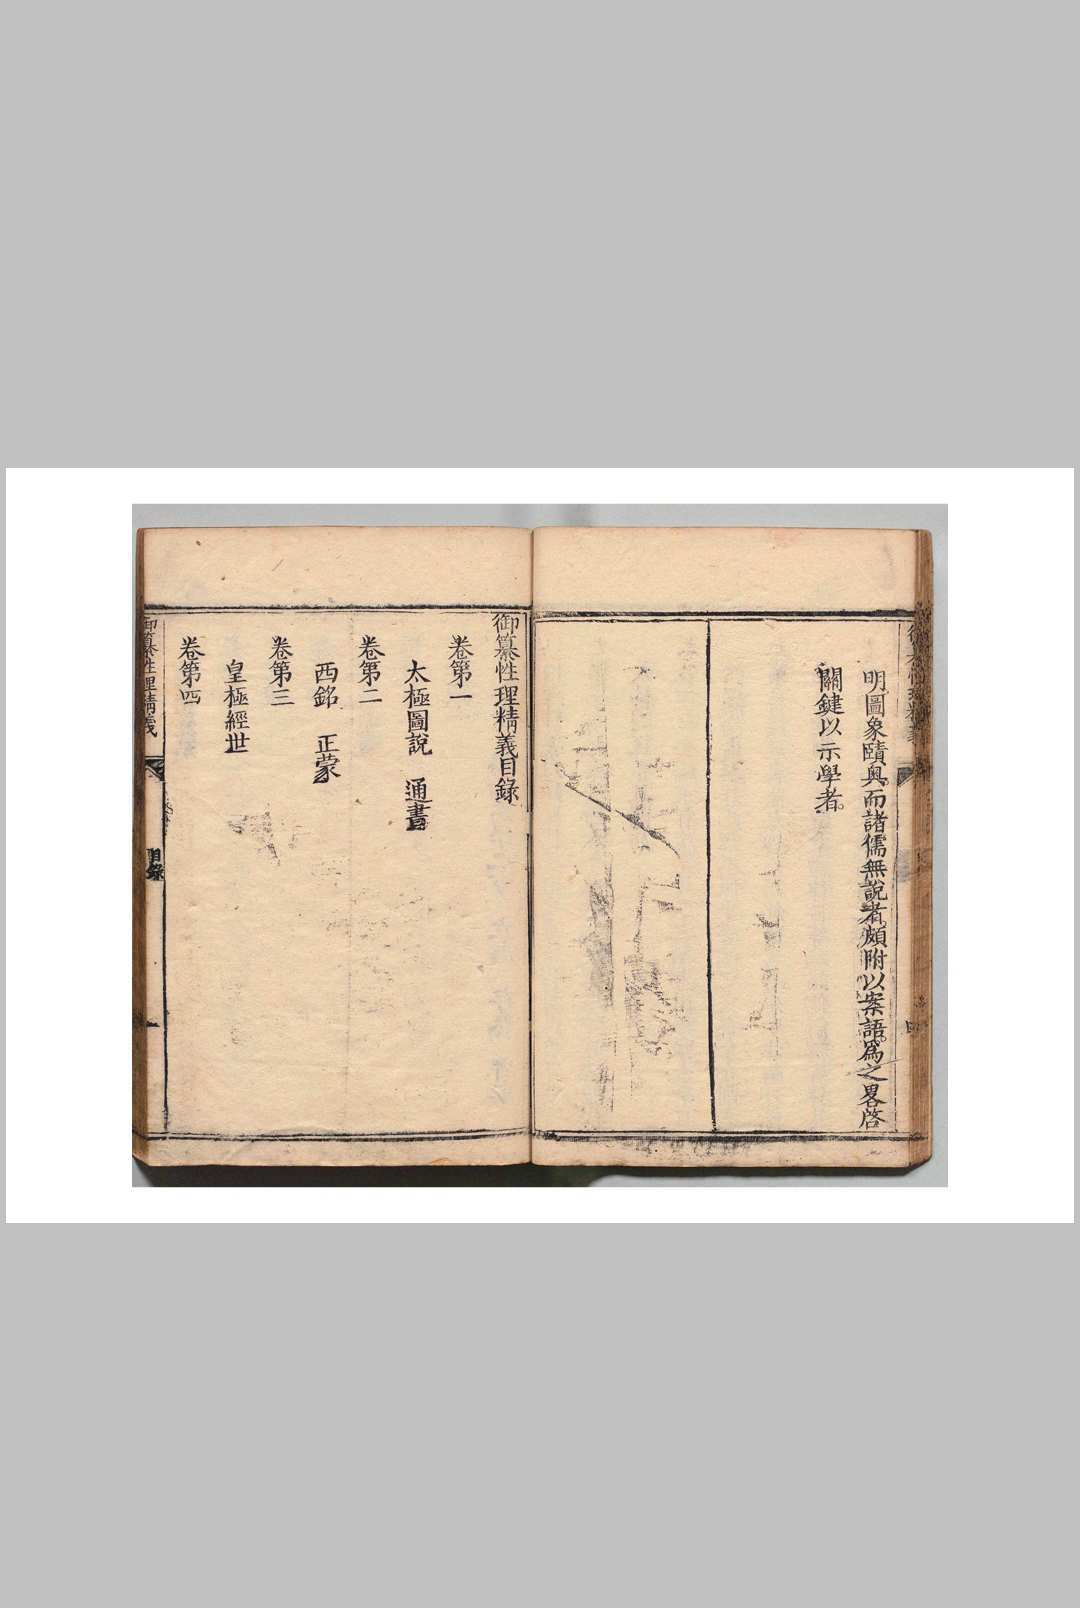 明圖象賾奧而諸儒無說者頗附以案語爲之畧啓
關鍵以示學者
御纂性理精義目錄
卷第一
太極圖說　通書
卷第二
西銘　正蒙
卷第三
皇極經世
卷第四
御纂性理精義
目錄
一